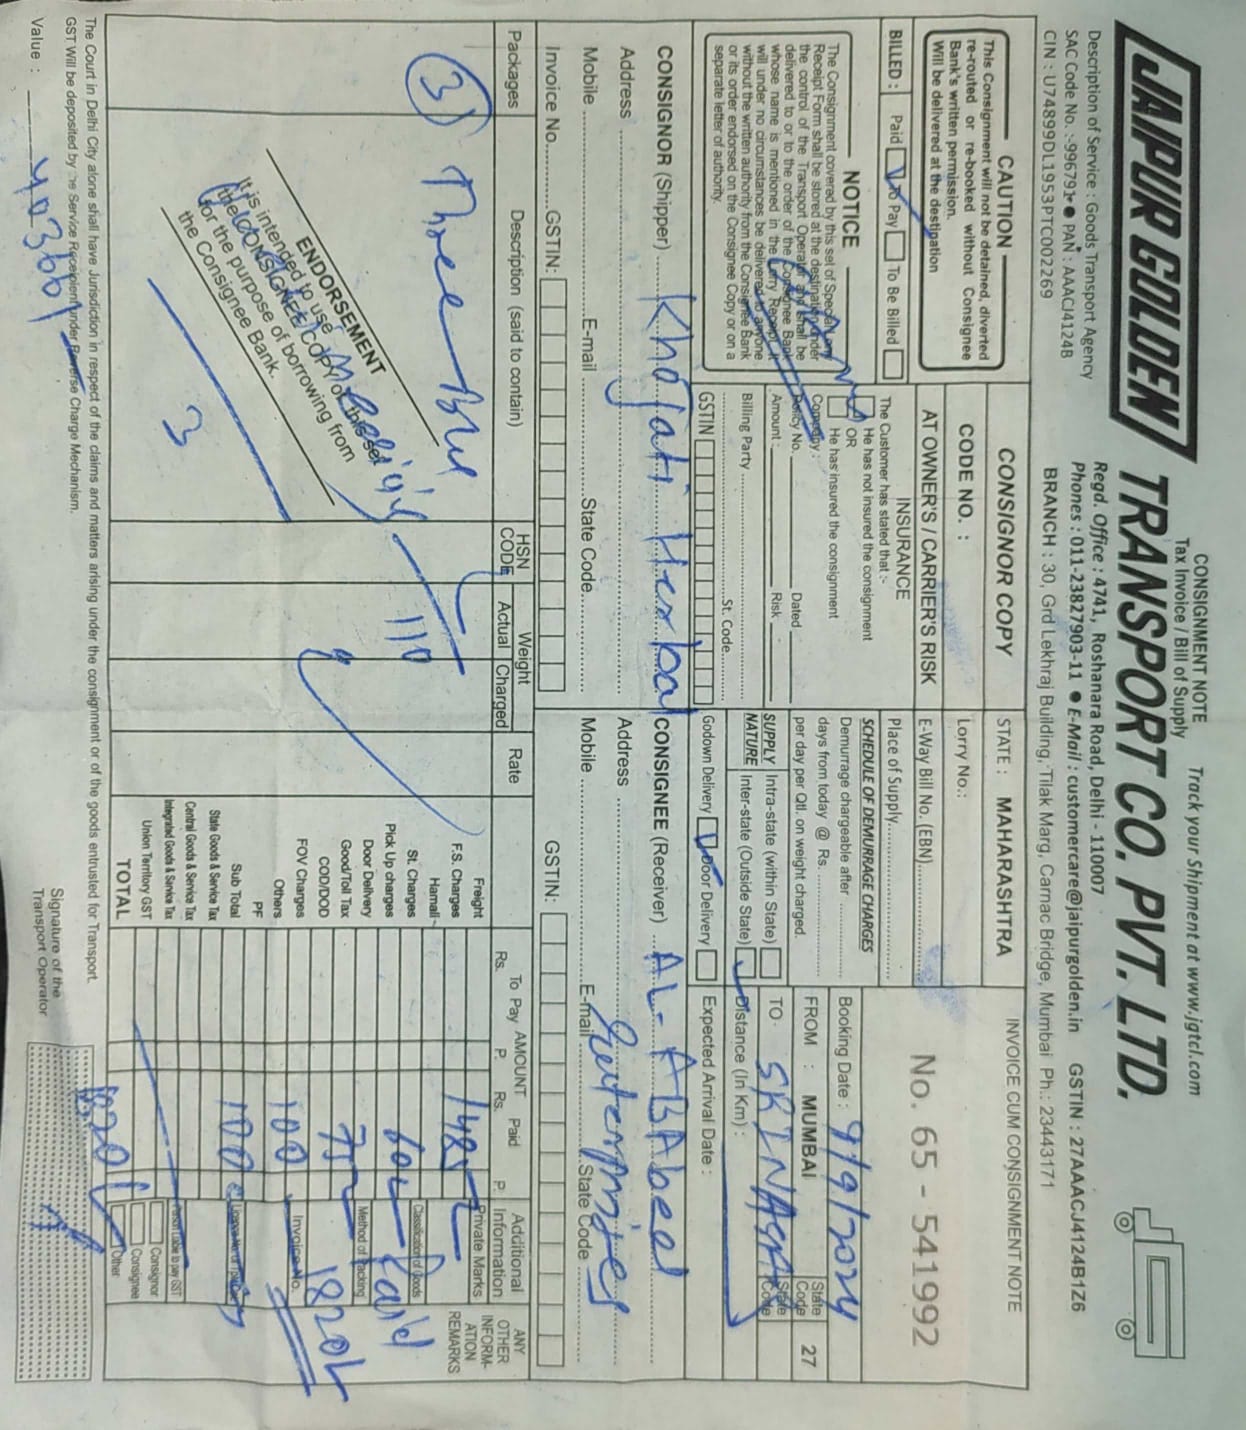 CONSIGNMENT NOTE
Tax Invoice / Bill of Supply
Track your Shipment at www.jgtcl.com
JAIPUR GOLDEN TRANSPORT CO. PVT. LTD.
Regd. Office : 4741, Roshanara Road, Delhi - 110007
Description of Service : Goods Transport Agency
SAC Code No. :-996791 ● PAN : AAACJ4124B
Phones : 011-23827903-11 ● E-Mail : customercare@jaipurgolden.in
GSTIN : 27AAACJ4124B1Z6
CIN : U74899DL1953PTC002269
BRANCH : 30, Grd Lekhraj Building, Tilak Marg, Carnac Bridge, Mumbai Ph.: 23443171
CAUTION
This Consignment will not be detained, diverted
re-routed or re-booked without Consignee
Bank's written permission.
Will be delivered at the destination
CONSIGNOR COPY
STATE : MAHARASHTRA
INVOICE CUM CONSIGNMENT NOTE
CODE NO. :
Lorry No.:
AT OWNER'S / CARRIER'S RISK
E-Way Bill No. (EBN)
No. 65 - 541992
BILLED : Paid To Pay To Be Billed
INSURANCE
The Customer has stated that :-
He has not insured the consignment
OR
He has insured the consignment
Company
Policy No. Dated
Amount Risk
Billing Party
St. Code
GSTIN
Place of Supply
SCHEDULE OF DEMURRAGE CHARGES
Demurrage chargeable after
days from today @ Rs.
per day per Qtl. on weight charged.
SUPPLY NATURE
Intra-state (within State)
Inter-state (Outside State)
Godown Delivery Door Delivery
Booking Date : 9/9/2024
FROM : MUMBAI State Code 27
TO : SRINAGAR State Code
Distance (In Km) :
Expected Arrival Date :
NOTICE
The Consignment covered by this set of Special Lorry
Receipt Form shall be stored at the destination under
the control of the Transport Operator and shall be
delivered to or to the order of the Consignee Bank
whose name is mentioned in the Lorry Receipt. It
will under no circumstances be delivered to anyone
without the written authority from the Consignee Bank
or its order endorsed on the Consignee Copy or on a
separate letter of authority.
CONSIGNOR (Shipper) Khojati Herbal
Address
Mobile E-mail State Code
Invoice No. GSTIN:
CONSIGNEE (Receiver) AL-ABAbeel
Address Enterprises
Mobile E-mail State Code
GSTIN:
Packages
Description (said to contain)
HSN CODE
Weight
Actual Charged
Rate
AMOUNT
To Pay Paid
Rs. P. Rs. P.
Additional Information
ANY OTHER INFORM-ATION REMARKS
3 Three
110
ENDORSEMENT
It is intended to use
the CONSIGNEE COPY of this set
for the purpose of borrowing from
the Consignee Bank.
3
Freight 1485
F.S. Charges
Hamali
St. Charges
Pick Up charges 60
Door Delivery
Good/Toll Tax 75
COD/DOD
FOV Charges
Others 100
PF
Sub Total 100
State Goods & Service Tax
Central Goods & Service Tax
Integrated Goods & Service Tax
Union Territory GST
TOTAL 1820/
Private Marks
Classification of Goods
Paid
Method of Packing
1820/
Invoice No.
Person Liable to pay GST
Consignor
Consignee
Other
The Court in Delhi City alone shall have Jurisdiction in respect of the claims and matters arising under the consignment or of the goods entrusted for Transport.
GST Will be deposited by the Service Recepient under Reverse Charge Mechanism.
Value : 40366/
Signature of the
Transport Operator